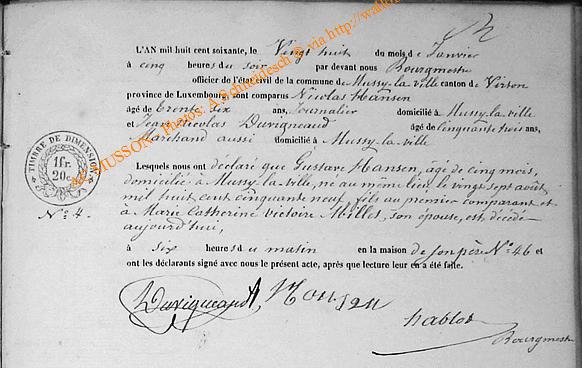 L'AN mil huit cent soixante, le Vingt huit du mois de Janvier
à cinq heures du soir par devant nous Bourgmestre
officier de l'état civil de la commune de Mussy-la-ville canton de Virton
province de Luxembourg, sont comparus Nicolas Hansen
âgé de trente six ans, Journalier domicilié à Mussy-la-ville
et Jean Nicolas Duvigneaud âgé de Cinquante trois ans,
Marchand aussi domicilié à Mussy-la-ville
TIMBRE DE DIMENSION
1fr.
20c.
N° 4.
Lesquels nous ont déclaré que Gustave Hansen, âgé de cinq mois,
domicilié à Mussy-la-ville, né au même lieu, le vingt sept août
mil huit cent cinquante neuf, fils au premier comparant et
à Marie Catherine Victoire Milles, son épouse, est décédé
aujourd'hui,
à six heures du matin en la maison de son père N° 46 et
ont les déclarants signé avec nous le présent acte, après que lecture leur en a été faite.
Duvigneaud, Honsen
hablot
Bourgmestre
MUSSON - Photos: A Schneidesch © via http://